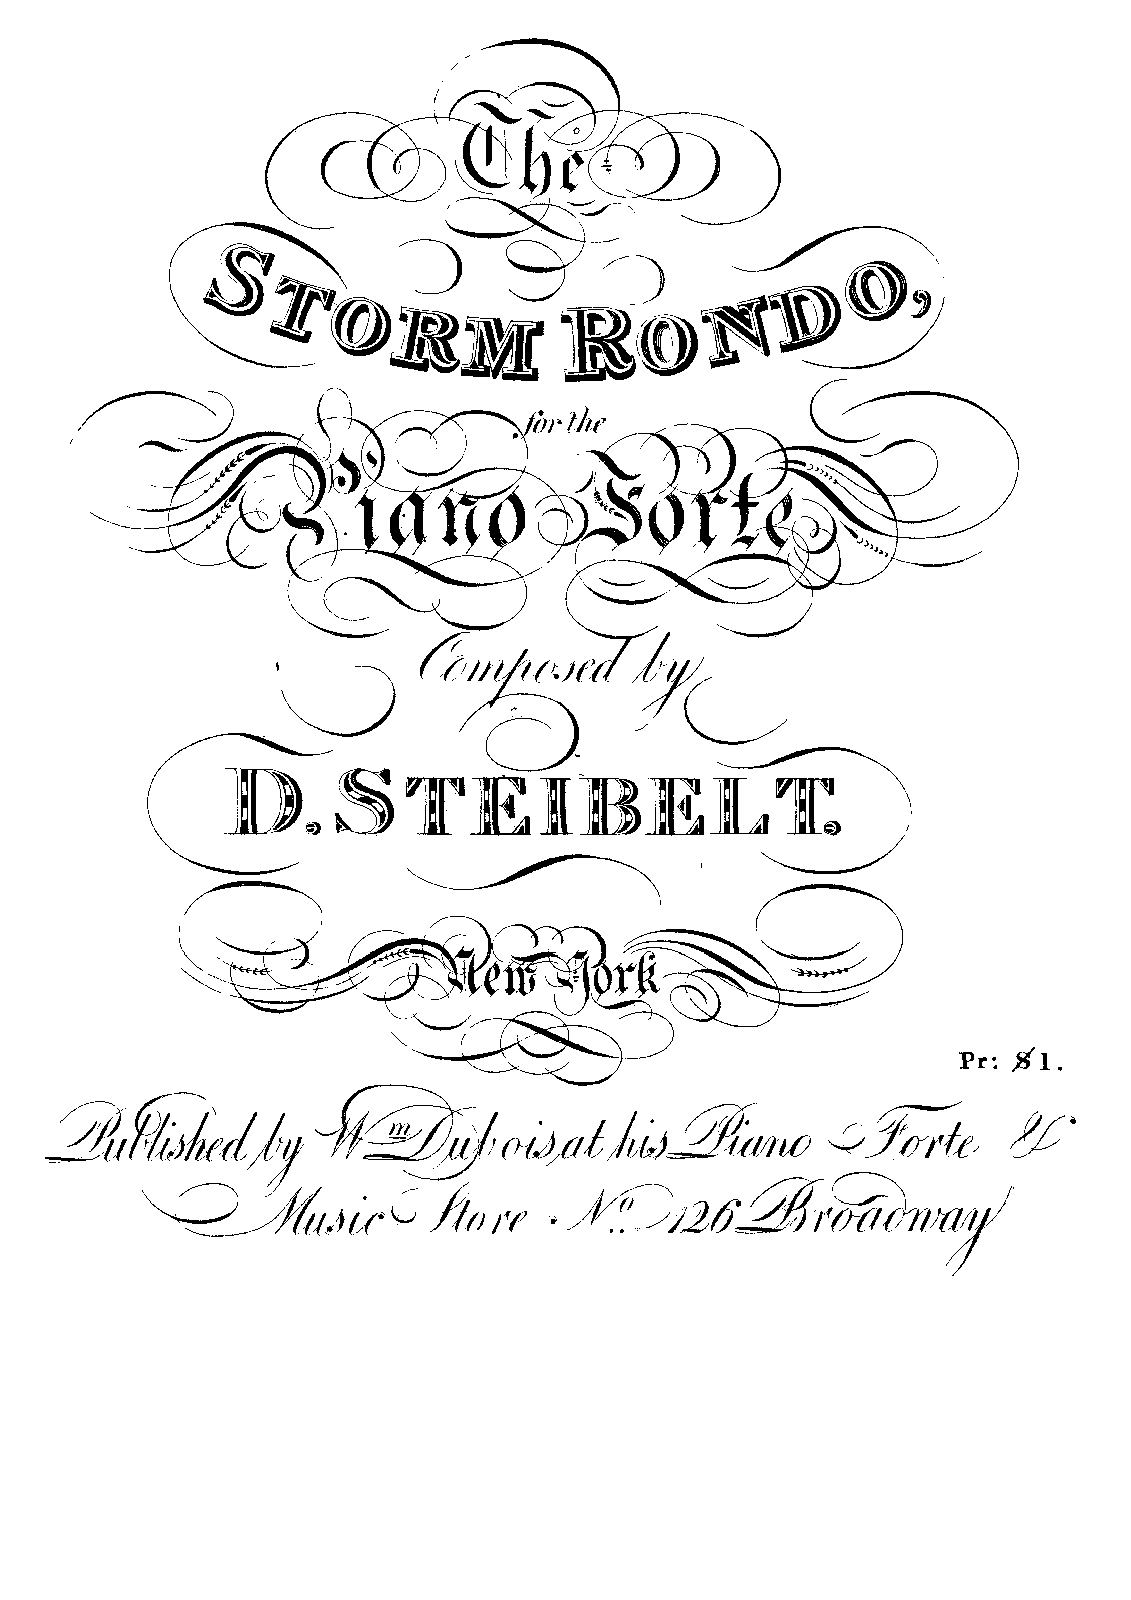 The
STORM RONDO,
for the
Piano Forte
Composed by
D. STEIBELT.
New York
Pr: $1.
Published by Wm Dubois at his Piano Forte &
Music Store No. 126 Broadway